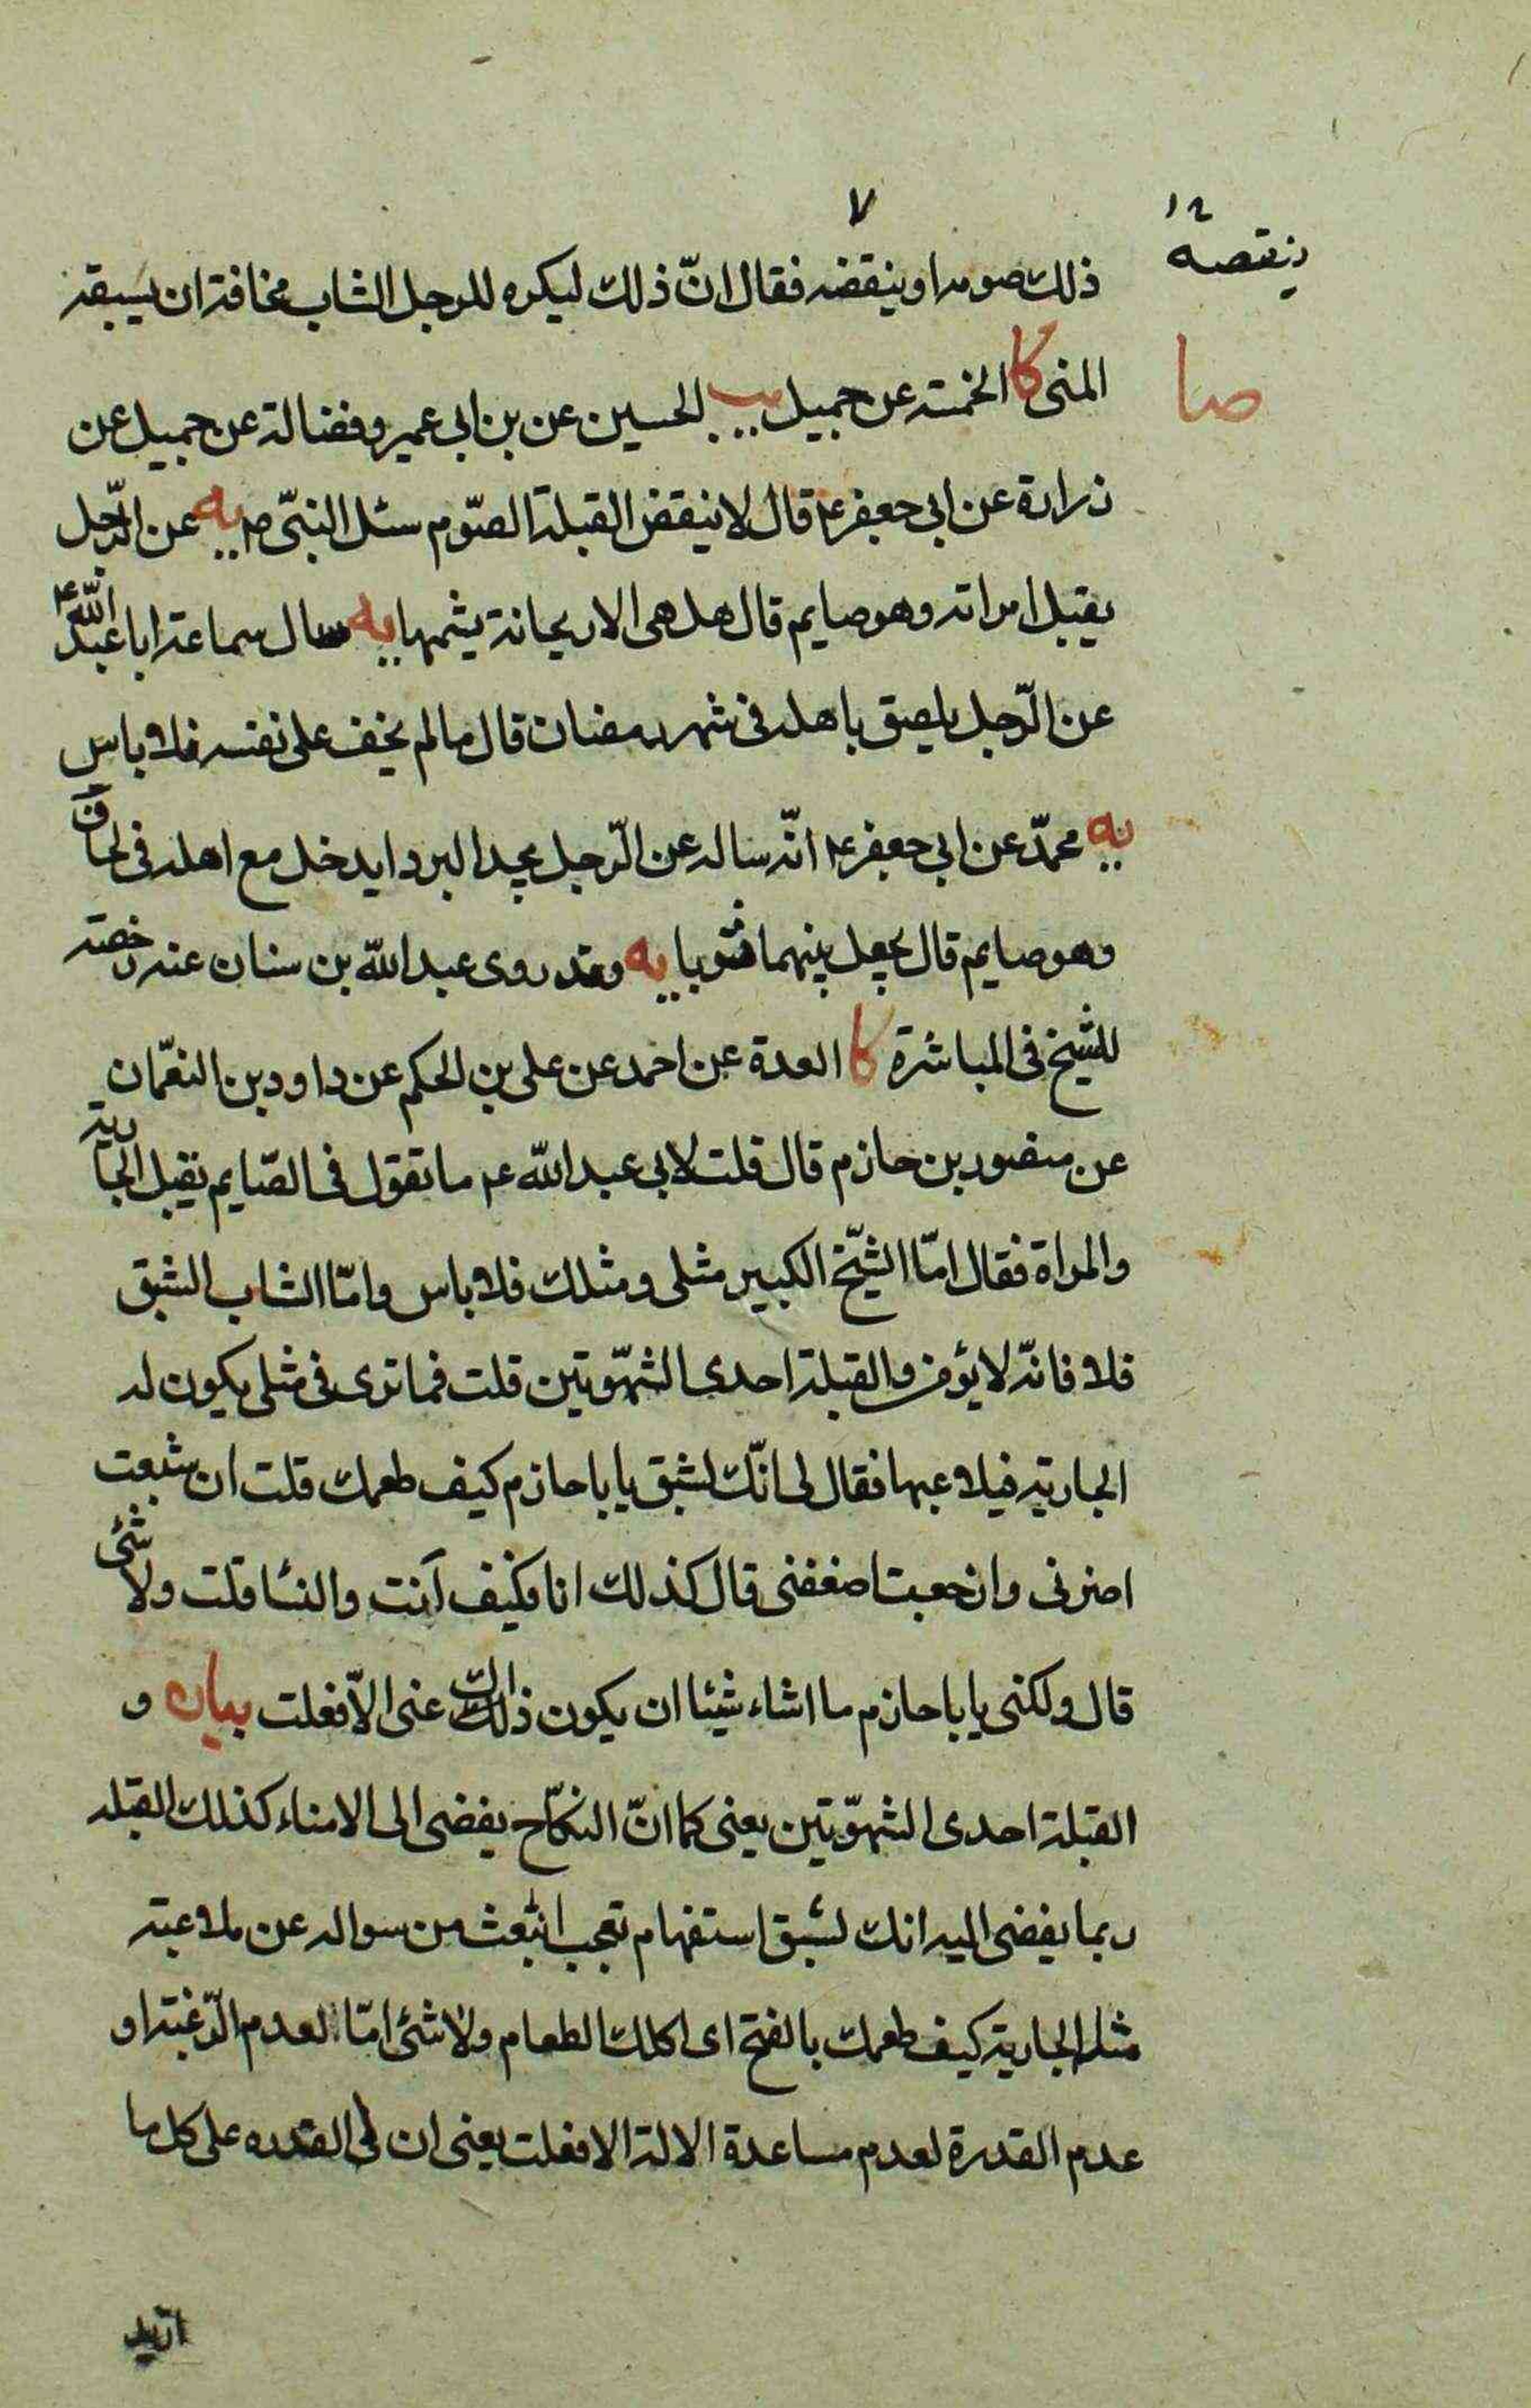 ٧
١٢
ينقصه
ذلك صومه او ينقضه فقال انّ ذلك ليكره للرجل الشاب مخافة ان يسبقه
صا
المنى كا الخمسة عن جميل يب الحسين عن بن ابى عمير وفضالة عن جميل عن
زرارة عن ابى جعفر ع قال لا ينقض القبلة الصّوم سئل النبىّ ص يه عن الرّجل
يقبل امراته وهو صايم قال هل هى الا ريحانة يشمها يه سال سماعة ابا عبد الله ع
عن الرّجل يلصق باهله فى شهر رمضان قال ما لم يخف على نفسه فلا باس
يه محمدّ عن ابى جعفر ع انّه ساله عن الرّجل يجد البرد ايدخل مع اهله فى لحاف
وهو صايم قال يجعل بينهما ثوبا يه وقد روى عبد الله بن سنان عنه رخصة
للشيخ فى المباشرة كا العدة عن احمد عن على بن الحكم عن داود بن النعمان
عن منصور بن حازم قال قلت لابى عبد الله ع ما تقول فى الصّايم يقبل الجارية
والمراة فقال امّا الشيّخ الكبير مثلى ومثلك فلا باس وامّا الشاب الشبق
فلا فانّه لا يؤمن والقبلة احدى الشهوّتين قلت فما ترى فى مثلى يكون له
الجارية فيلاعبها فقال لى انّك لشبق يا با حازم كيف طعمك قلت ان شبعت
اضرنى وان جعت اضعفنى قال كذلك انا فكيف انت والنسا قلت ولا شئ
قال ولكنى يا با حازم ما اشاء شيئا ان يكون ذلك عنى الاّ فعلت بيان و
القبلة احدى الشهوّتين يعنى كما انّ النكاح يفضى الى الامناء كذلك القبله
ربما يفضى اليه انك لشبق استفهام تعجب انبعث من سواله عن ملاعبة
مثله الجارية كيف طعمك بالفتح اى اكلك الطعام ولا شئ امّا لعدم الرّغبة او
عدم القدرة لعدم مساعدة الالة الا فعلت يعنى ان لى القدره على كل ما
اريد